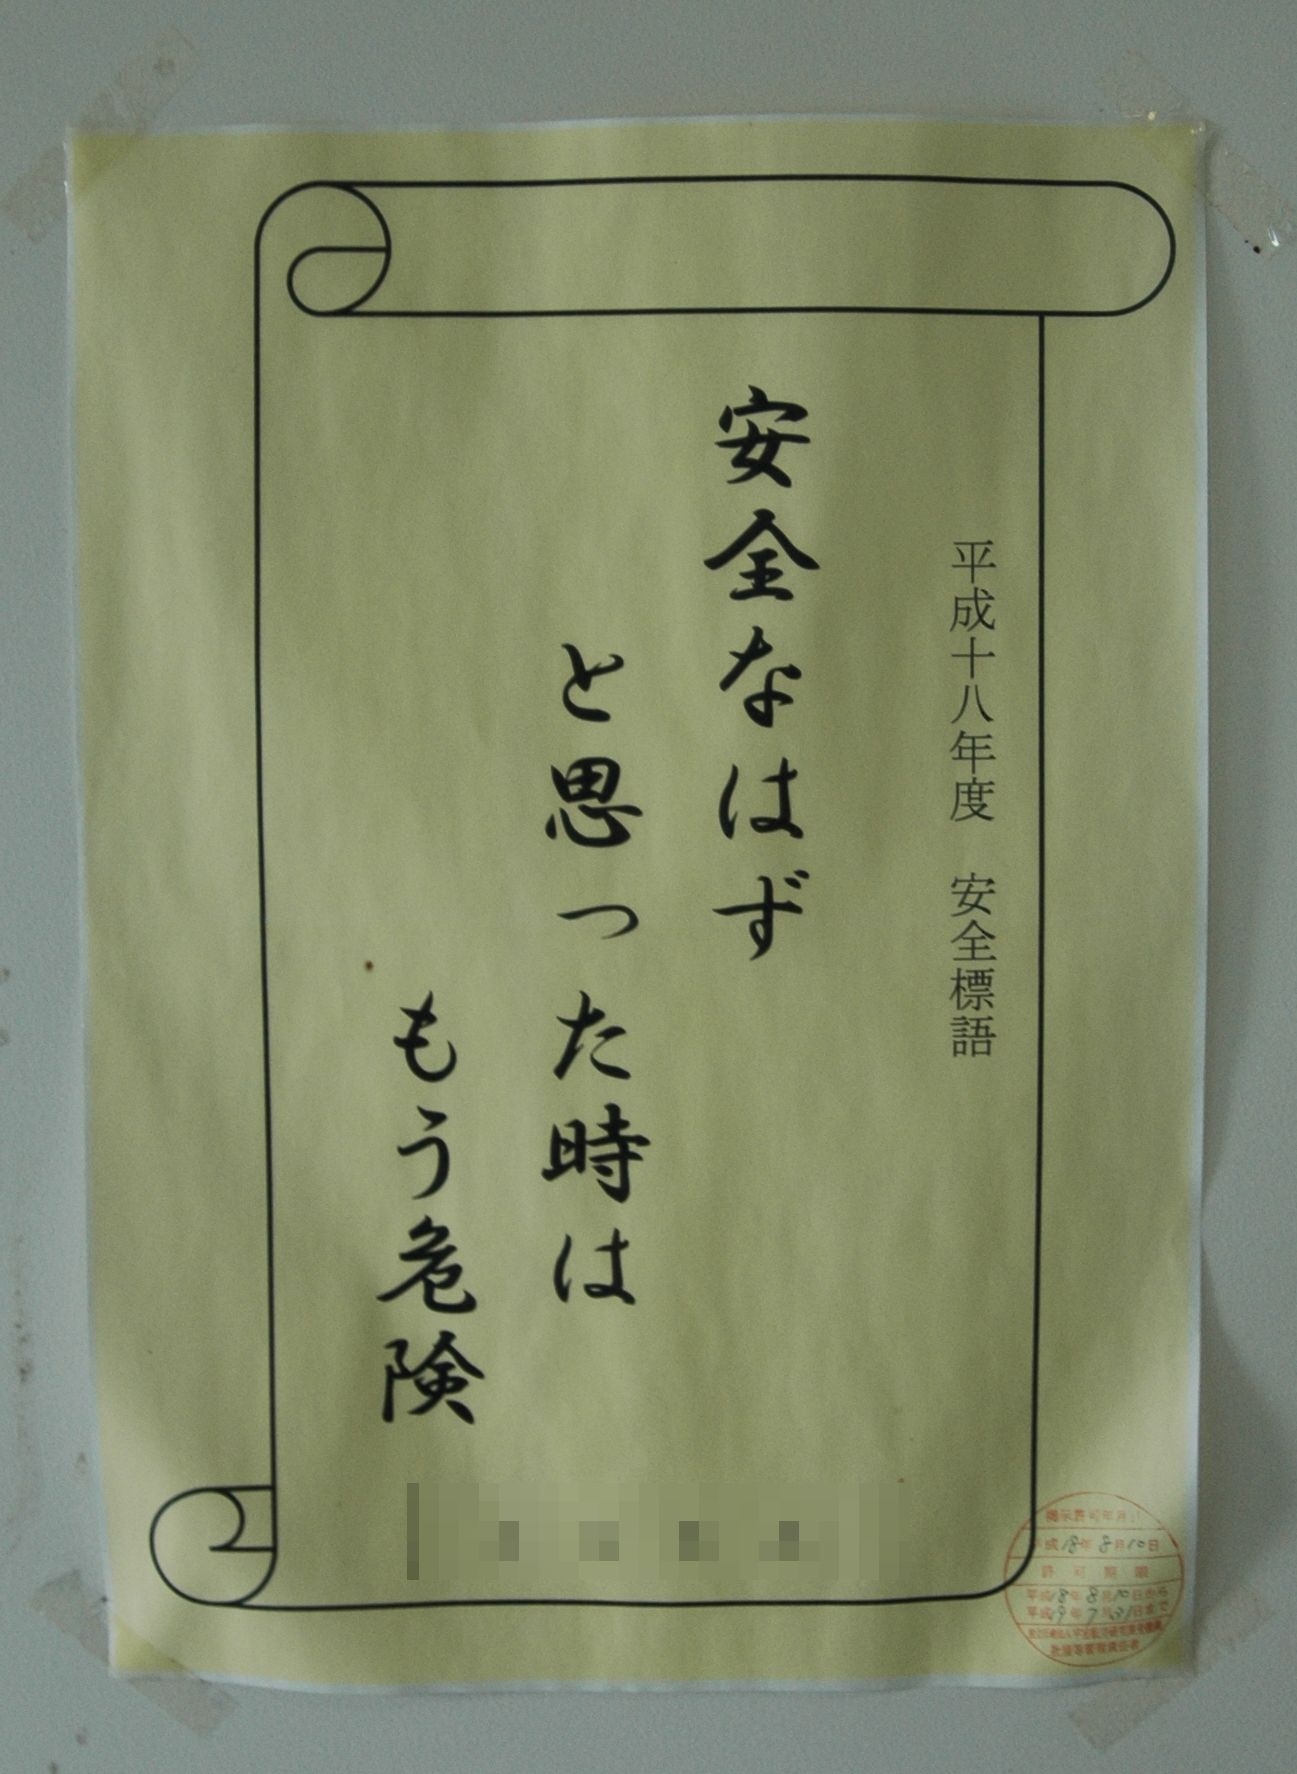 平成十八年度　安全標語
安全なはず
と思った時は
もう危険
掲示許可年月日
平成18年8月10日
許可期限
平成18年8月10日から
平成19年7月31日まで